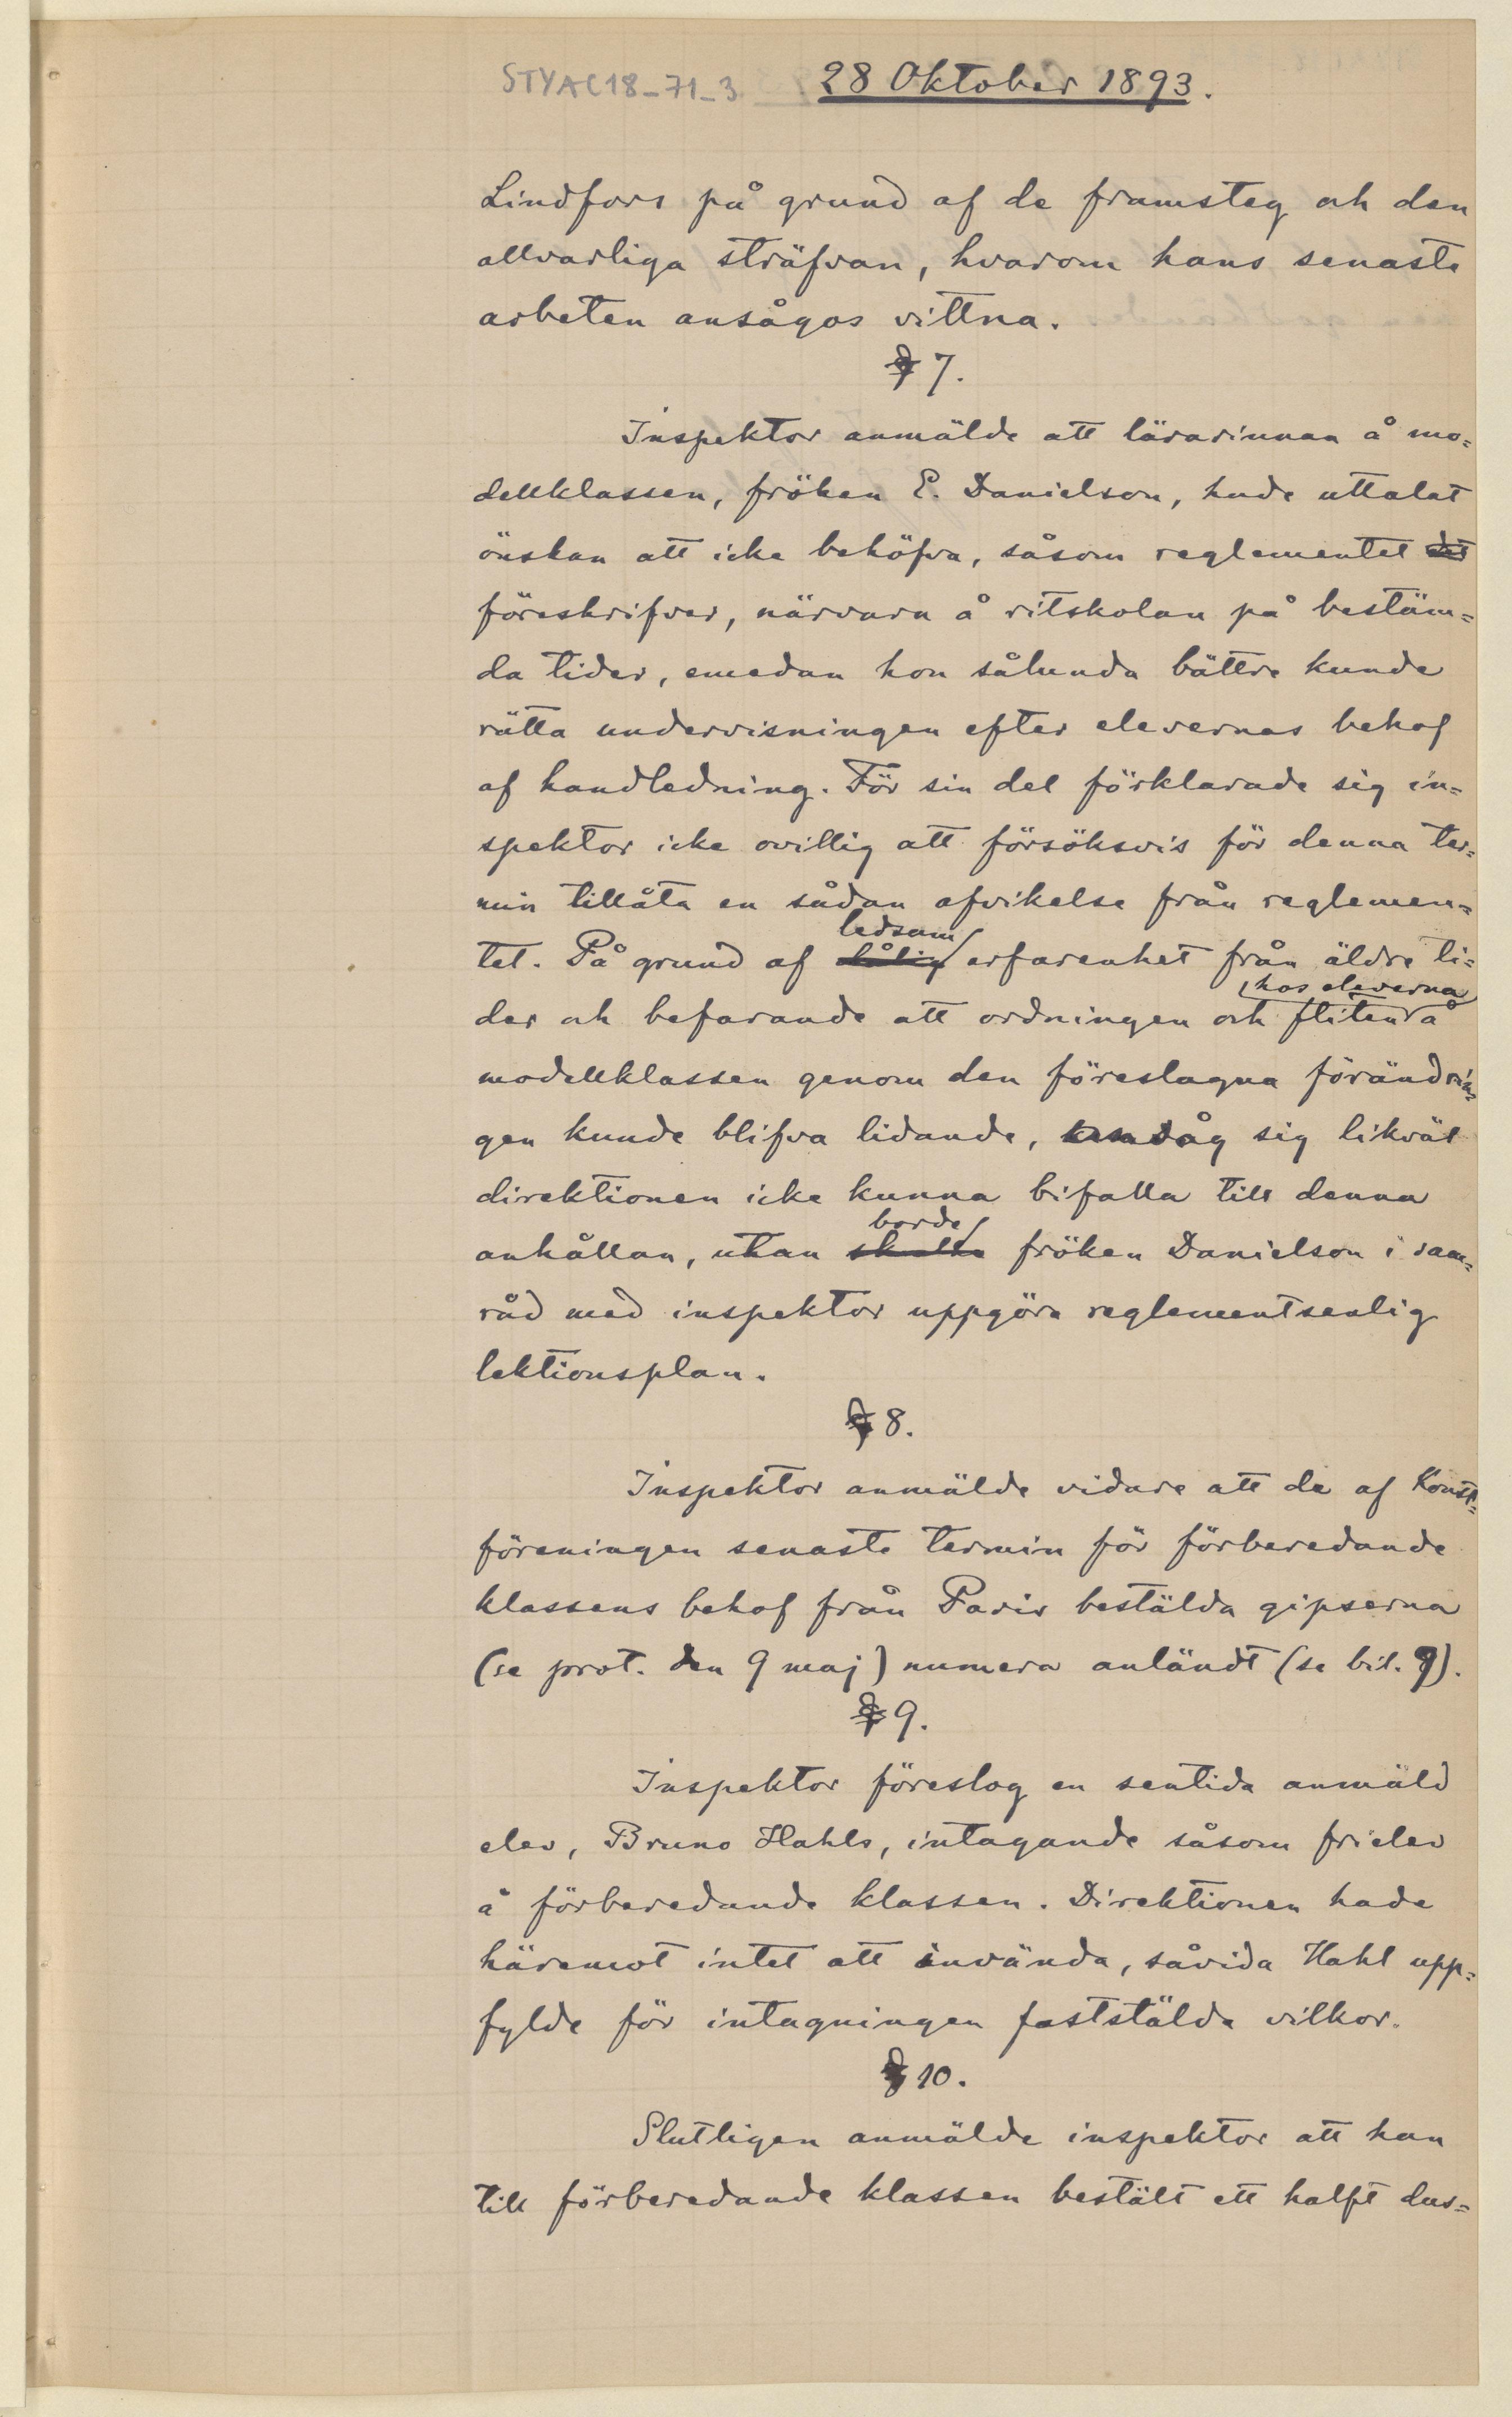 STYAC18_71_3 28 Oktober 1893.
Lindfors på grund af de framsteg och den
allvarliga sträfvan, hvarom hans senaste
arbeten ansågos vittna.
§ 7.
Inspektor anmälde att lärarinnan å mo=
dellklassen, fröken E. Danielson, hade uttalat
önskan att icke behöfva, såsom reglementet det
föreskrifver, närvara å ritskolan på bestäm=
da tider, emedan hon sålunda bättre kunde
rätta undervisningen efter elevernas behof
af handledning. För sin del förklarade sig in=
spektor icke ovillig att försöksvis för denna ter=
min tillåta en sådan afvikelse från reglemen=
ledsam
tet. På grund af dålig erfarenhet från äldre ti=
hos eleverna
der och befarande att ordningen och fliten å
modellklassen genom den föreslagna förändrin=
gen kunde blifva lidande, ansåg sig likväl
direktionen icke kunna bifalla till denna
borde
anhållan, utan skulle fröken Danielson i sam=
råd med inspektor uppgöra reglementsenlig
lektionsplan.
§ 8.
Inspektor anmälde vidare att de af Konst=
föreningen senaste termin för förberedande
klassens behof från Paris bestälda gipserna
(se prot. den 9 maj) numera anländt (se bil. 9).
§ 9.
Inspektor föreslog en sentida anmäld
elev, Bruno Hahls, intagande såsom frielev
å förberedande klassen. Direktionen hade
häremot intet att invända, såvida Hahl upp=
fylde för intagningen faststälda vilkor.
§ 10.
Slutligen anmälde inspektor att han
till förberedande klassen bestält ett halft dus=